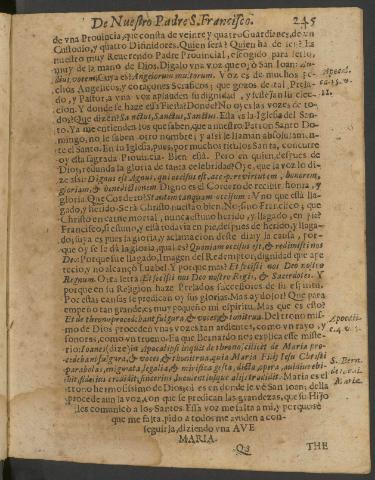 De Nuestro Padre S. Francisco. 245
de vna Prouincia, que consta de veinte y quatro Guardianes, de vn
Custodio, y quatro Difinidores. Quien serà? Quien ha de ser? ha
nuestro muy Reuerendo Padre Prouincial, escogido para serlo,
muy de la mano de Dios. Digalo vna voz que oyò San Iuan: Au-
diui, vocem. Cuya es? Angelorum multorum. Voz es de muchos pe-
chos Angelicos, y coraçones Seraficos; que gozos de tal Prela-
do, y Pastor, a vna voz aplauden su dignidad, y festejan su elec-
cion. Y donde se haze esta Fiesta? Donde? No oyes las vozes de to-
dos? Que dizen? Sanctus, Sanctus, Sanctus. Esta es la Iglesia del San-
to. Ya me entienden los que saben, que a nuestro Patron Santo Do-
mingo, no le saben otro nombre, y assi le llaman absolutamen-
te el Santo. En su Iglesia, pues, por muchos titulos Santa, concurre
oy esta sagrada Prouincia. Bien està. Pero en quien, despues de
Dios, redunda la gloria de tanta celebridad? Oye, que la voz lo di-
ze assi: Dignus est Agnus, qui occisus est, accipere virtutem, honorem,
gloriam, & benedictionem. Digno es el Cordero de recibir honra, y
gloria. Que Cordero? Stantem tanquam occisum: Vno que està lla-
gado, y herido. Serà Christo nuestro bien? No, sino Francisco; que
Christo en carne mortal, nunca estuuo herido, y llagado, en pie?
Francisco, si estuuo, y està todavia en pie, despues de herido, y llaga-
do; suya es pues la gloria, y aclamacion deste dia; y la causa, por-
que oy se le dà la gloria, qual es? Quoniam occisus est, & redimisti nos
Deo: Porque fue llagado, Imagen del Redemptor, dignidad que ape-
tecio, y no alcançò Luzbel. Y porque mas? Et fecisti nos Deo nostro
Regnum. Otra letra: Et fecisti nos Deo nostro Reges, & Sacerdotes. Y
porque en su Religion haze Prelados successores de su espiritu.
Por estas causas se predican oy sus glorias. Mas ay dolor! Que para
empeño tan grande, es muy pequeño mi espiritu. Mas que es esto?
Et de throno procedebant fulgura, & voces, & tonitrua. Del trono mis-
mo de Dios proceden vnas vozes tan ardientes, como vn rayo, y
sonoras, como vn trueno. Ea que Bernardo nos explica este miste-
rio: Ioanes (dize) in Apocalipsi inquit de throno, scilicet de Maria pro-
cedebant fulgura, & voces & tonitrua, quia Maria Filij Iesu Christi
parabolas, enigmata, legalia, & mirifica gesta, dicta, opera, auidius ebi-
bit, fidelius credidit, sincerius,
Maria es el
trono hermosissimo de Dios; ai es en donde le vè San Iuan; della
procede aun la voz, con que se predican las grandezas, que su Hijo
les comunicò a los Santos. Essa voz me falta a mi, y porque sè
que me falta, pido a todos me ayuden a con-
seguirla, diziendo vna AVE
MARIA.
Q3 THE
Apocal.
12.
Apocali.
c. 4. v. 5.
S. Bern.
Maria.